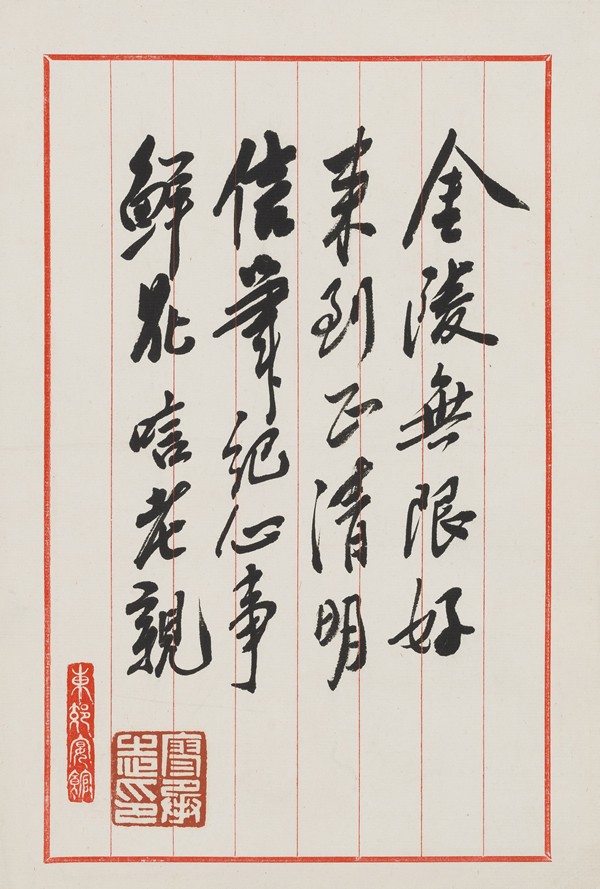 金陵無限好
来到正清明
信筆記心事
鮮花唁老親
東郊宾館